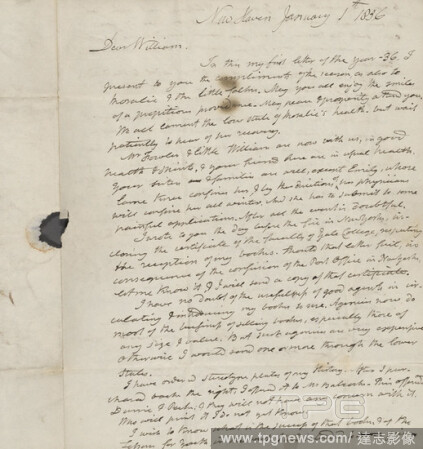 New Haven January 1st 1836
Dear William.
In this my first letter of the year -36. I
present to you the compliments of the season, as also to
Rosalie & the little folks. May you all enjoy the smiles
of a propitious providence. May peace & prosperity attend you.
We all lament the low state of Rosalie's health, but wait
patiently to hear of her recovery.
Mr Fowler & little William are now with us, in good
health & spirits, & your friends here are in usual health.
Your sisters & families are well, except Emily, whose
lame knee confines her, & by the directions of her physician
will confine her all winter. And she has to submit to some
painful applications. After all the result is doubtful.
I wrote to you the day before the fire in New York, in-
closing the certificate of the faculty of Yale College, respecting
the reception of my books. Should that letter fail, in
consequence of the confusion of the Post Office in New York,
let me know it & I will send a copy of that certificate.
I have no doubt of the usefulness of good agents in cir-
culating & introducing my books to use. Agencies now do
most of the business of selling books, especially those of
any size & value. But such agencies are very expensive
otherwise I would send one or more through the lower
States.
I have ordered stereotype plates of my History. After I pur-
chased back the right, I offered it to Mr Babcock. This offended
Durrie & Peck, & they will not have any concern with it.
Who will print it I do not yet know.
I wish to know what is the success of that book, & of the
TPG
www.tpgnews.com / 達志影像